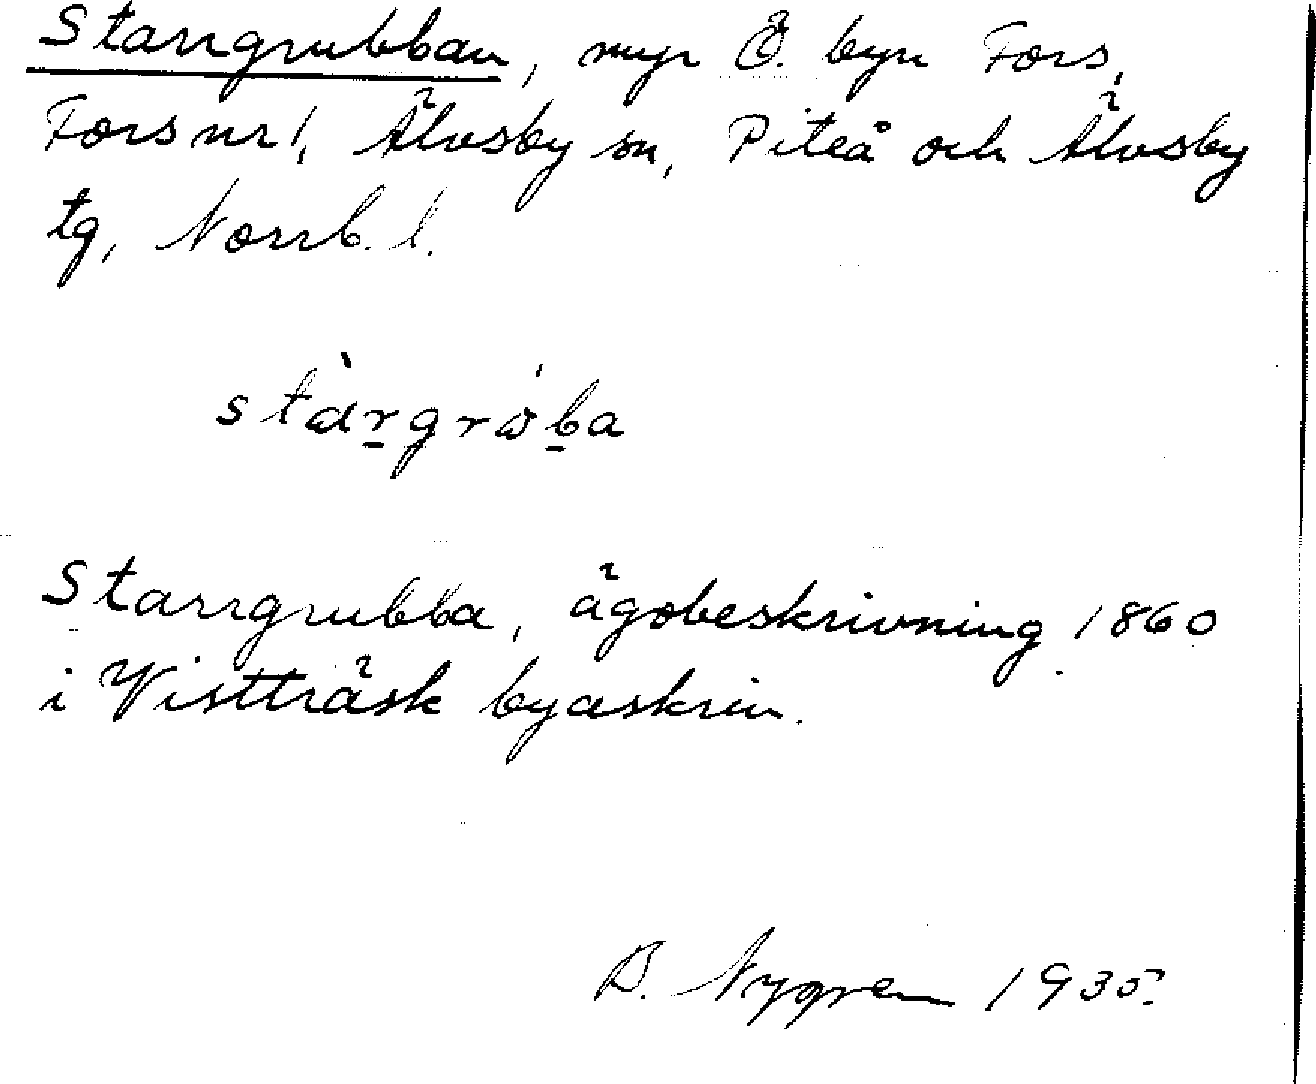 Starrgrubban, myr Ö. byn Fors,
Fors nr 1, Älvsby sn, Piteå och Älvsby
tg, Norrb. l.
stàrgrὠba
Starrgrubba, ägobeskrivning 1860
i Vistträsk byaskrin.
B. Nygren 1935